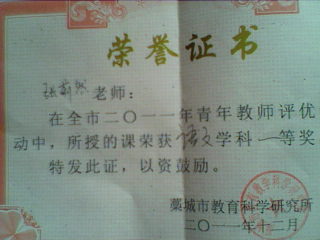 荣誉证书
张 然 老师：
在全市二〇一一年青年教师评优
动中，所授的课荣获语文学科一等奖
特发此证，以资鼓励。
藁城市教育科学研究所
二〇一一年十二月